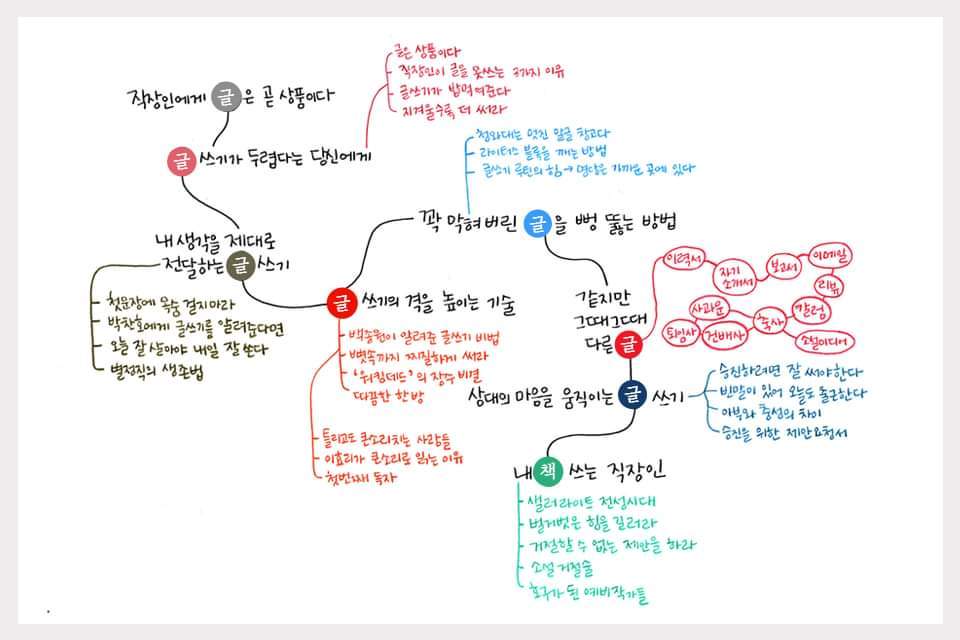 직장인에게 글은 곧 상품이다
글쓰기가 두렵다는 당신에게
글은 상품이다
직장인이 글을 못쓰는 3가지 이유
글쓰기가 밥먹여준다
지겨울수록 더 써라
내 생각을 제대로
전달하는 글쓰기
첫문장에 목숨 걸지마라
박찬호에게 글쓰기를 알려준다면
오늘 잘 살아야 내일 잘 쓴다
별정직의 생존법
글쓰기의 격을 높이는 기술
백종원이 알려준 글쓰기 비법
뼛속까지 찌질하게 써라
'워킹데드'의 장수 비결
따끔한 한방
틀리고도 큰소리치는 사람들
이효리가 큰소리로 읽는 이유
첫번째 독자
꽉 막혀버린 글을 뻥 뚫는 방법
청와대는 멋진 말글 창고다
라이터스 블록을 깨는 방법
글쓰기 루틴의 힘 → 명답은 가까운 곳에 있다
같지만
그때그때
다른 글
이력서
자기
소개서
보고서
이메일
리뷰
칼럼
소셜미디어
축사
건배사
사과문
퇴임사
상대의 마음을 움직이는 글쓰기
승진하려면 잘 써야한다
빈말이 있어 오늘도 출근한다
아부와 충성의 차이
승진을 위한 제안요청서
내 책 쓰는 직장인
샐러라이트 전성시대
벌거벗은 힘을 길러라
거절할 수 없는 제안을 하라
소설 거절술
호구가 된 예비작가들